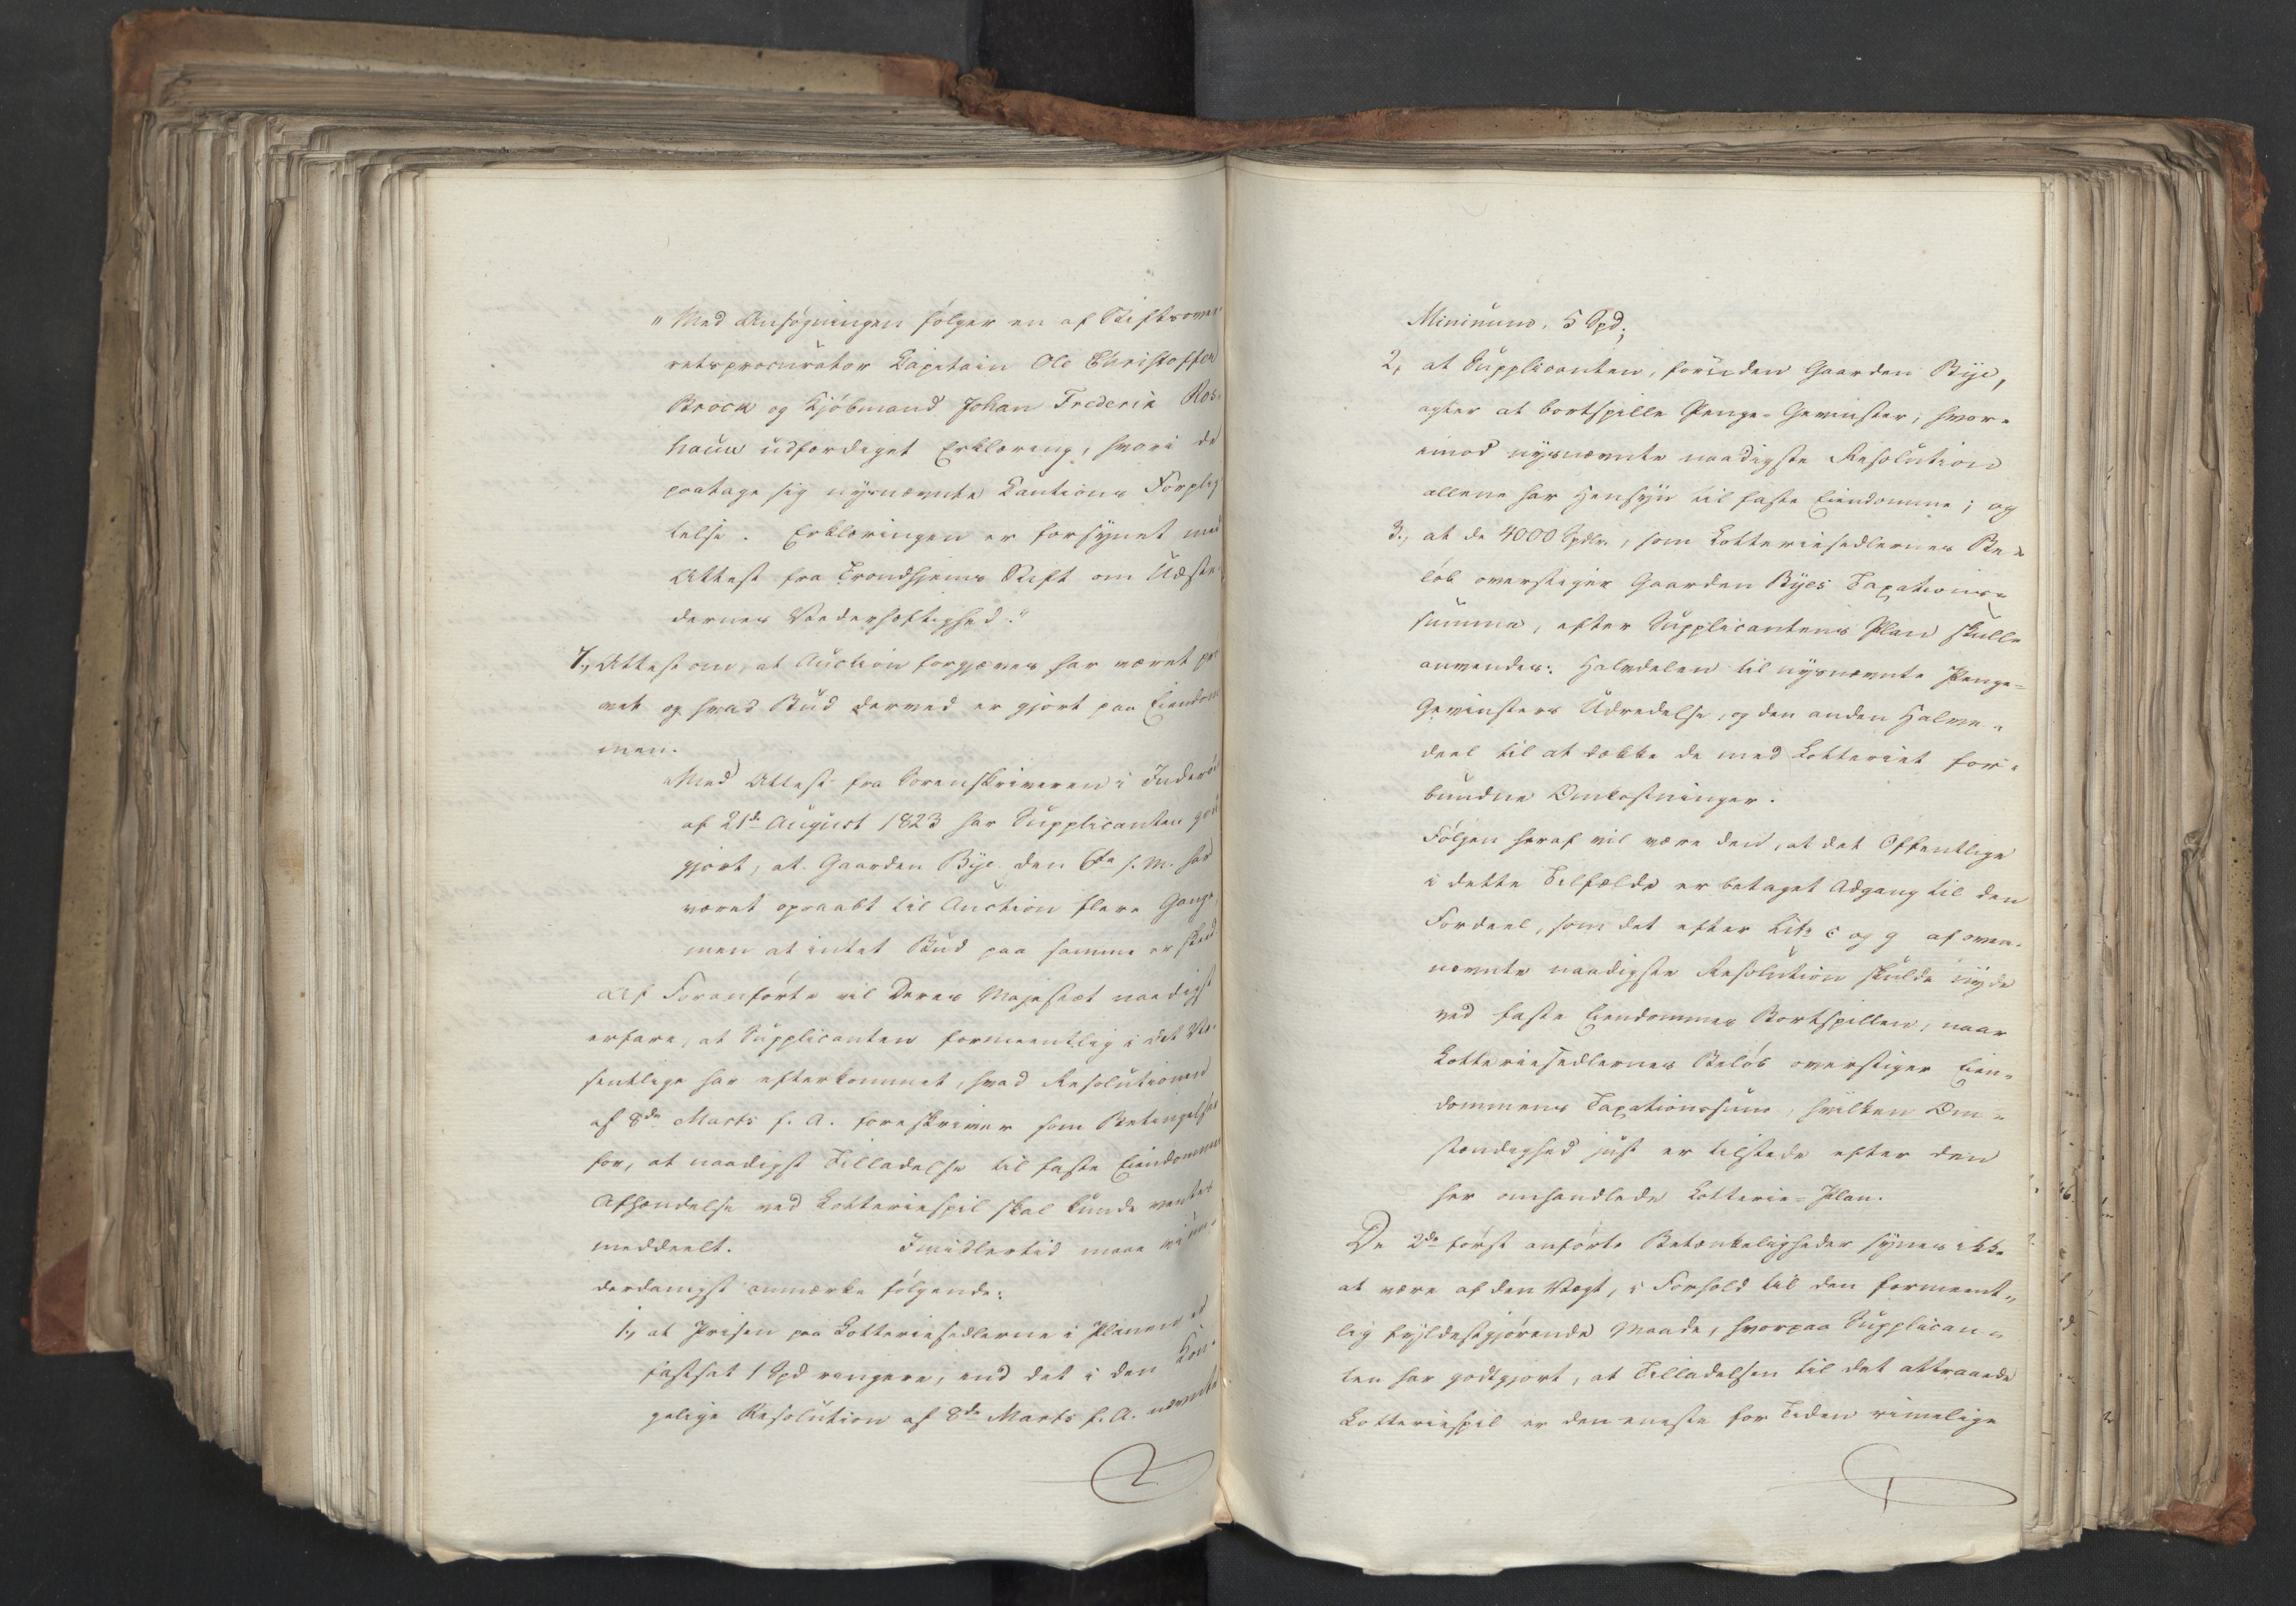 "Med Ansøgningen følger en af Stiftsover-
retsprocurator Capitain Ole Christoffer
Brock og Kjøbmand Johan Frederik Ros-
naun udfærdiget Erklæring, hvori de
paatage sig nysnævnte Cautions Forplig-
telse. Erklæringen er forsynet med
Attest fra Trondhjems Stift om Udste-
dernes Vederhæftighed."
7., Attest om, at Auction forgjæves har været prø-
vet og hvad Bud derved er gjort paa Eiendom-
men.
"Med Attest fra Sorenskriveren i Inderøe
af 21de August 1823 har Supplicanten godt-
gjort, at Gaarden Bye den 6te s. M. har
været opraabt til Auction flere Gange,
men at intet Bud paa samme er skeed.
Af Foranførte vil Deres Majestæt naadigst
erfare, at Supplicanten formeentlig i det Væ-
sentlige har efterkommet, hvad Resolutionen
af 8de Marts f. A. foreskriver som Betingelser
for, at naadigst Tilladelse til faste Eiendommes
Afhændelse ved Lotteriespil skal kunde ventes
meddeelt. Imidlertid maae vi un-
derdanigst anmærke følgende:
1., at Prisen paa Lotteriesedlerne i Planen er
fastsat 1 Spd ringere, end det i den Kon-
gelige Resolution af 8de Marts f. A. nævnte
Minimum, 5 Spd;
2, at Supplicanten, foruden Gaarden Bye,
agter at bortspille Penge-Gevinster, hvor-
imod nysnævnte naadigste Resolution
allene har Hensyn til faste Eiendomme; og
3., at de 4000 Spdlr., som Lotteriesedlernes Be-
løb overstiger Gaarden Byes Taxations-
summa, efter Supplicantens Plan skulle
anvendes: Halvdelen til nysnævnte Penge-
Gevinsters Udredelse, og den anden Halve-
deel til at dække de med Lotteriet for-
bundne Omkostninger.
Følgen heraf vil være den, at det Offentlige
i dette Tilfælde er betaget Adgang til den
Fordeel, som det efter Litr c og g af oven-
nævnte naadigste Resolution skulde nyde
ved faste Eiendommes Bortspillen, naar
Lotteriesedlernes Beløb overstiger Eien-
dommens Taxationssum, hvilken Om-
stændighed just er tilstede efter den
her omhandlede Lotterie-Plan.
De 2de først anførte Betænkeligheder synes ikke
at være af den Vægt, i Forhold til den formeent-
lig fyldestgjørende Maade, hvorpaa Supplican-
ten har godtgjort, at Tilladelsen til det attraaede
Lotteriespil er den eneste for Tiden rimelige